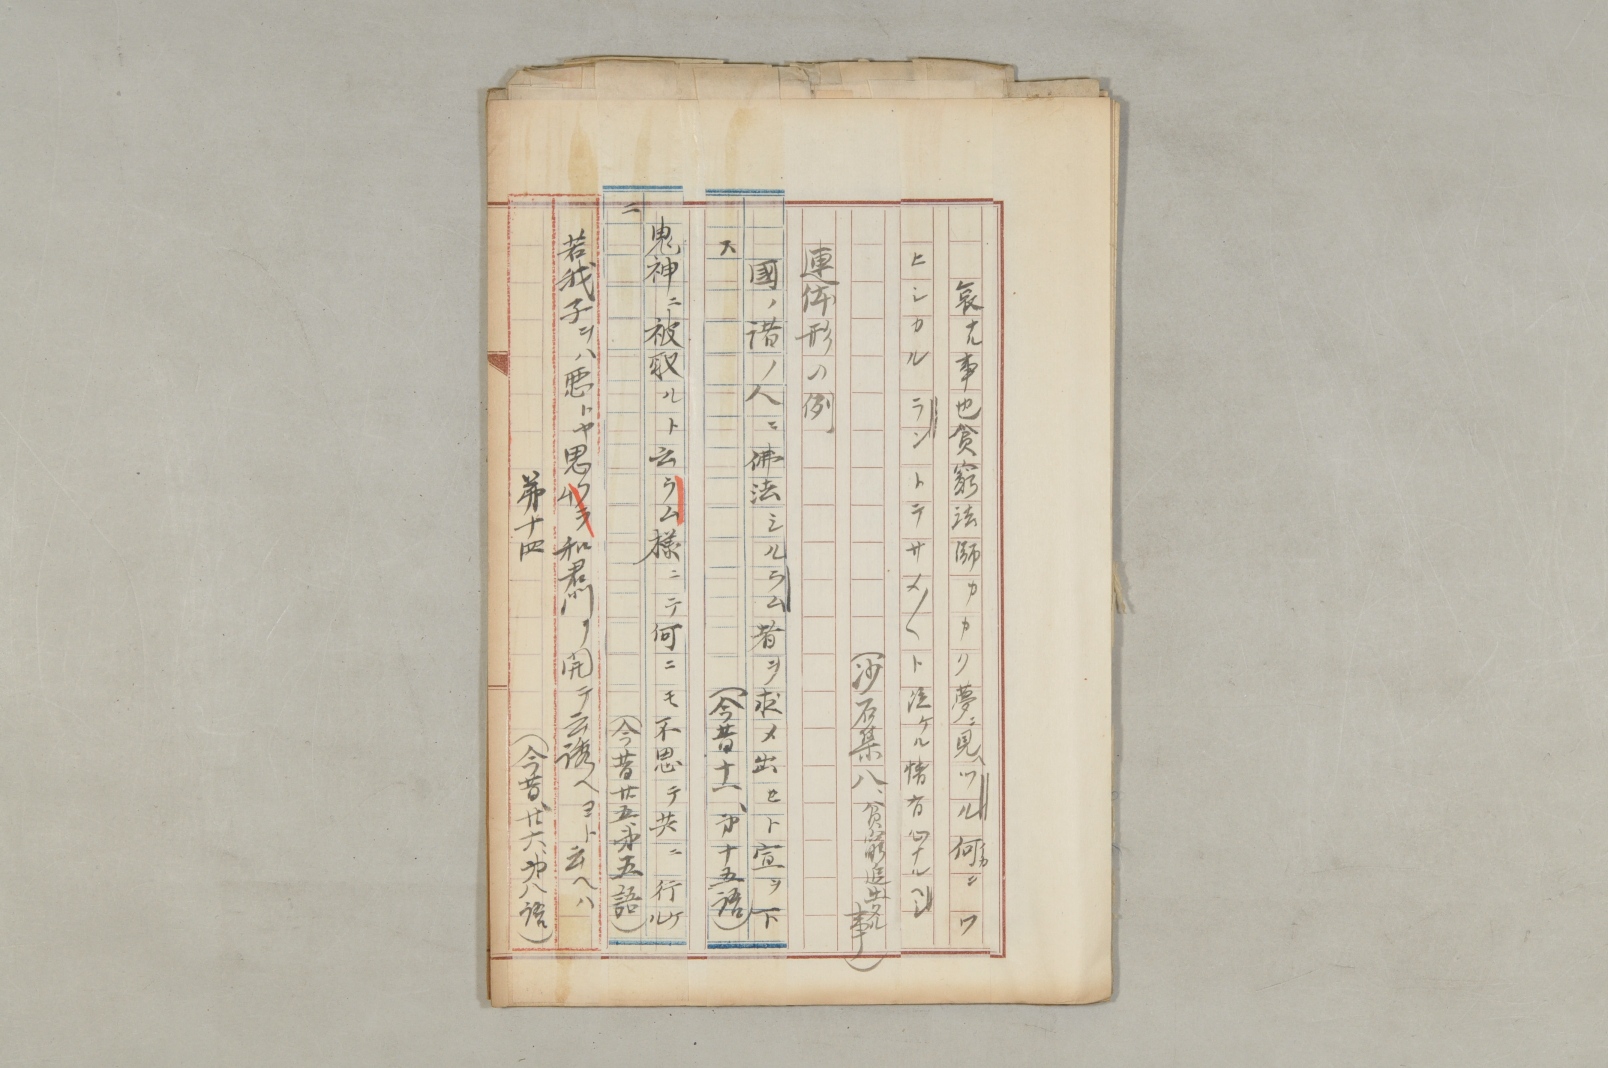 哀ナル事也貧窮法師カカリ夢ニ見ヘツル何ニワ
ヒシカルラントテサメ〱ト泣ケル情有心ナルヘシ
(沙石集八、貧窮追出タル事)
連体形の例
國ノ諸ノ人ニ佛法シルラム者ヲ求メ出セト宣ヲ下
ス
(今昔十一、第十五語)
鬼神ニ被取ルト云ラム様ニテ何ニモ不思テ共ニ行ケル
ニ
(今昔廿五第五語)
若我子ヲハ悪トヤ思ムラ和君門ヲ開テ云誘ヘヨト云ヘハ
第十四
(今昔廿六、第八語)